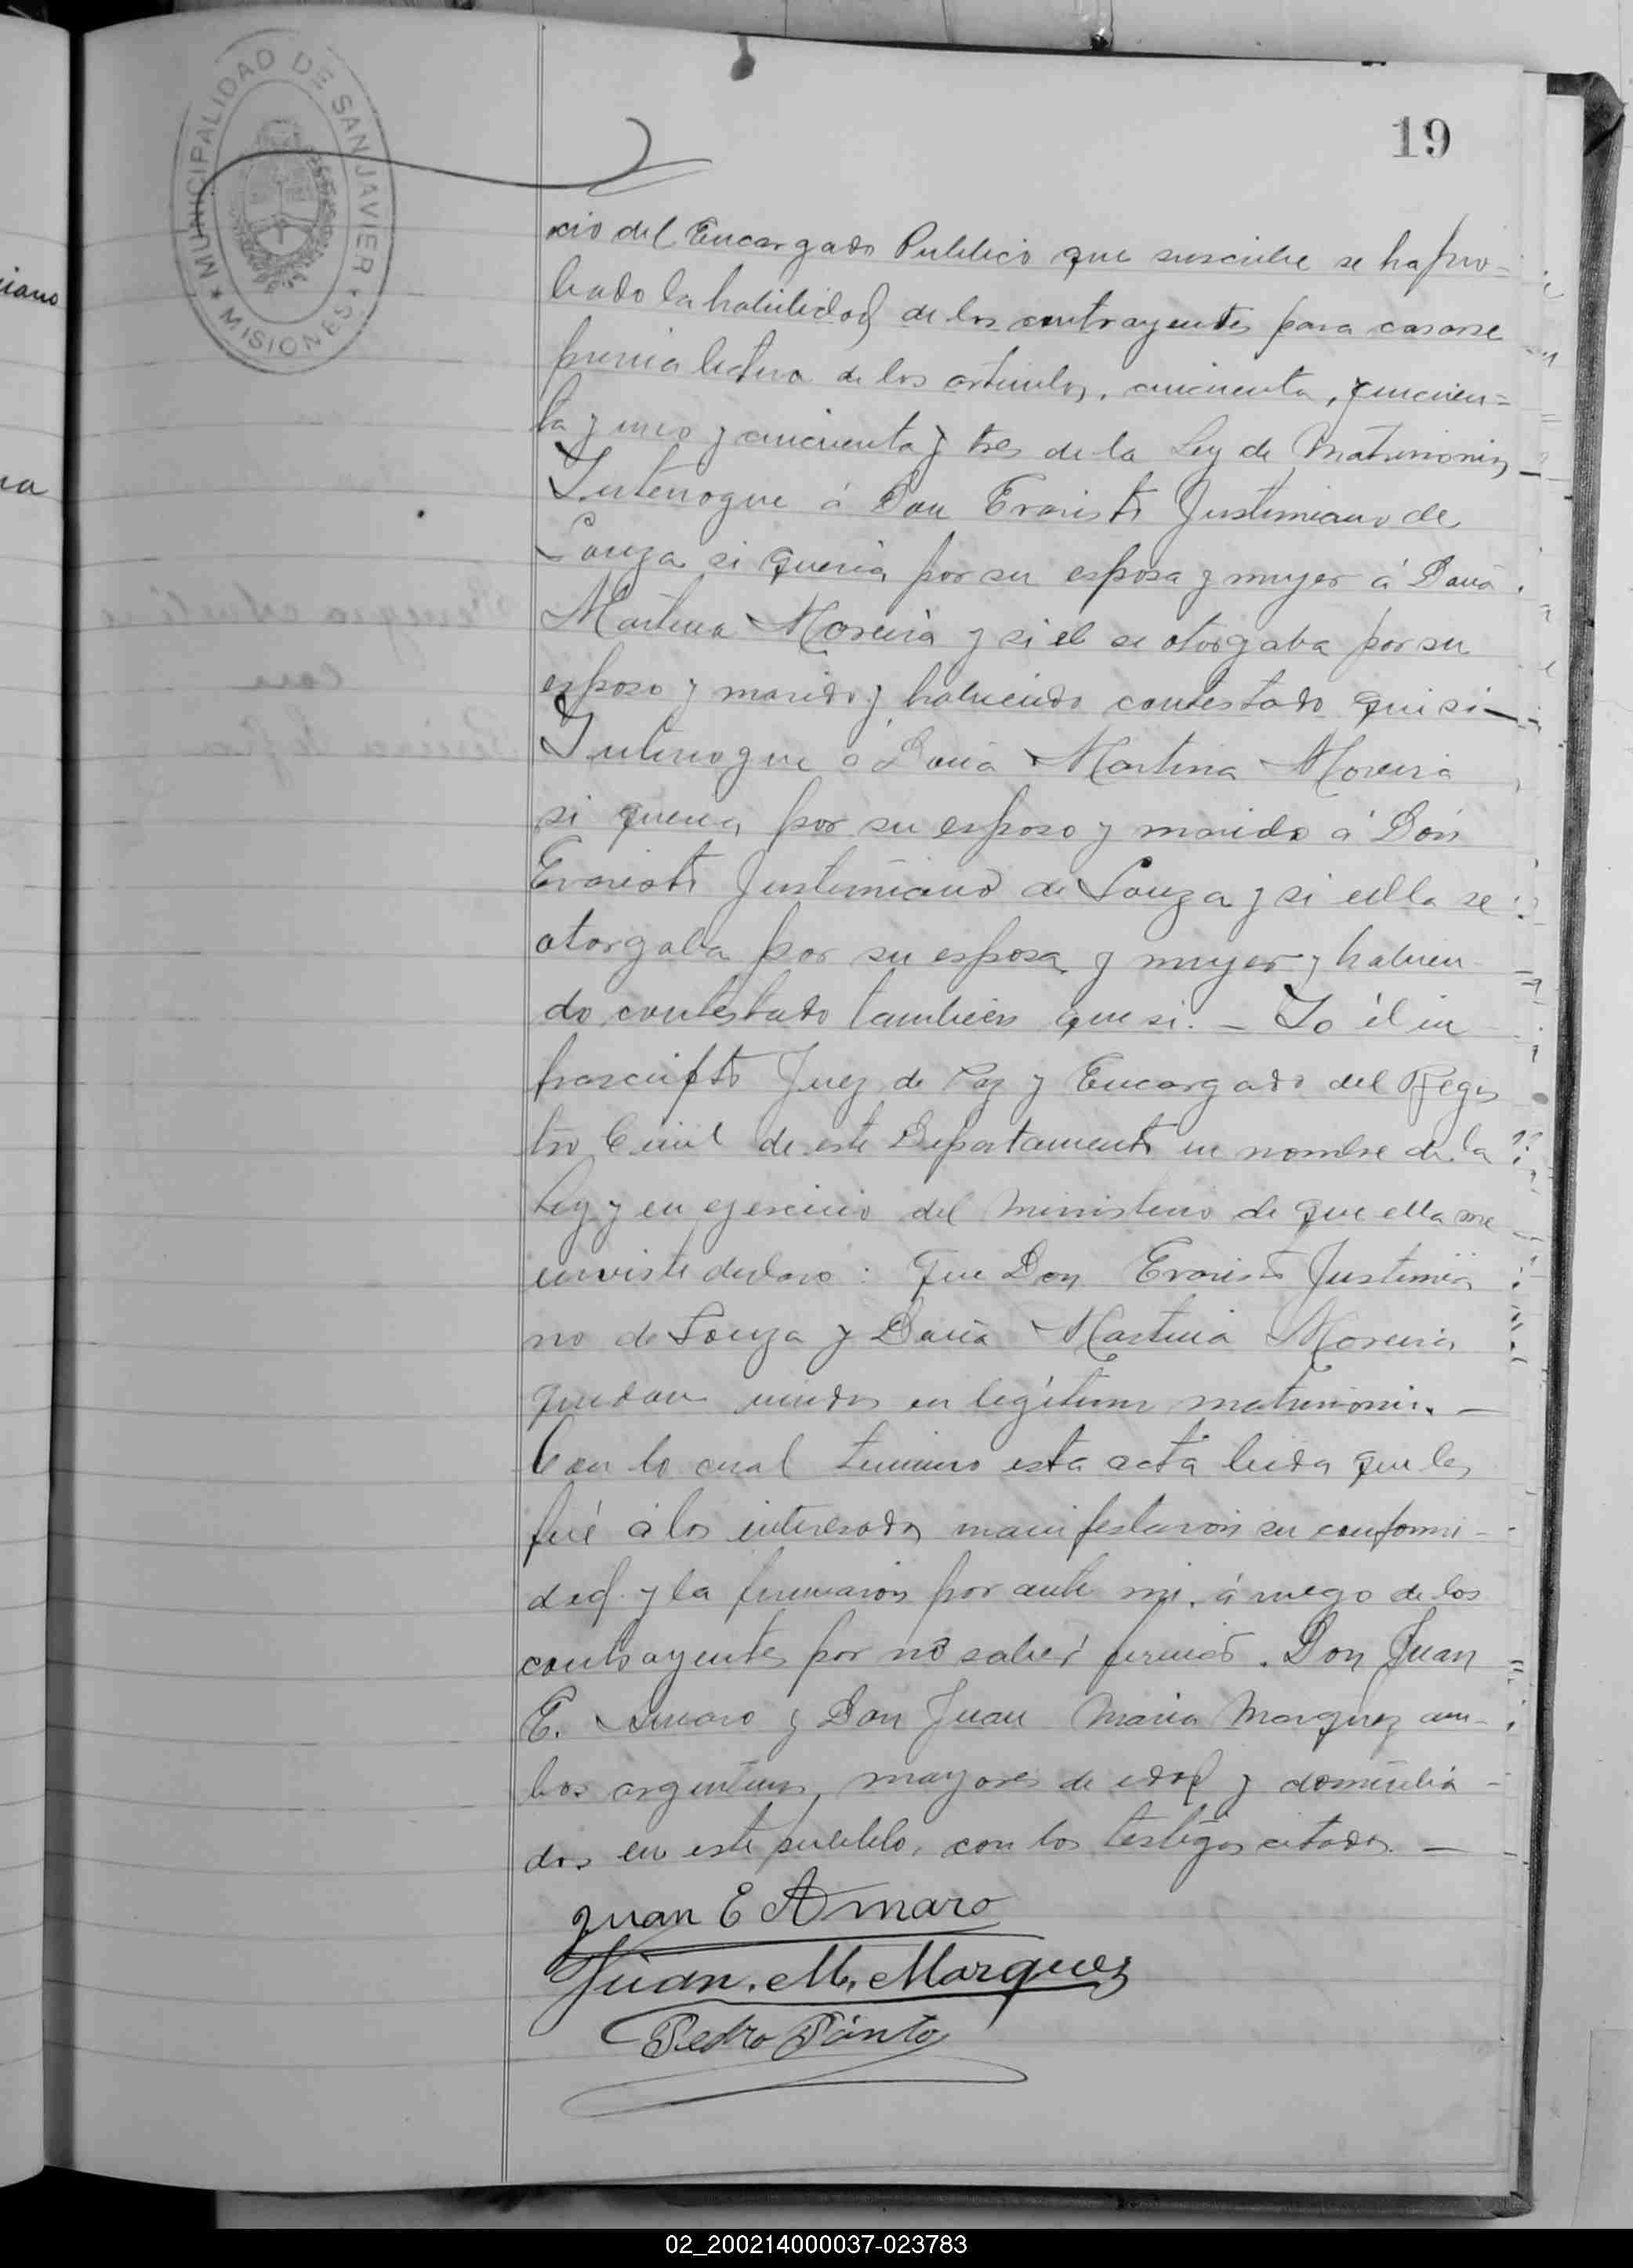 19
MUNICIPALIDAD DE SAN JAVIER
★ MISIONES ★
iano
na
cio del Encargado Publico que suscribe se ha pro-
bado la habilidad de los contrayentes para casarse
previa lectura de los articulos, cincuenta, cincuen=
ta y uno y cincuenta y tres de la Ley de Matrimonio
Interrogue á Don Evaristo Justiniano de
Souza si queria por su esposa y muyer á Doña
Martina Moreira y si el se otorgaba por su
esposo y marido y habiendo contestado que si—
Interrogue á Doña Martina Moreira
si queria por su esposo y marido á Don
Evaristo Justiniano de Souza y si ella se
otorgaba por su esposa y muyer y habien
do contestado tambien que si. — Yo él in
frascripto Juez de Paz y Encargado del Regis
tro Civil de este Departamento en nombre de la
Ley y en ejercicio del Ministerio de que ella me
enviste declaro: Que Don Evaristo Justinia
no de Souza y Doña Martina Moreira
quedan unidos en legítimo matrimonio. —
Con lo cual termino esta acta leida que les
fué á los interesados manifestaron su conformi-
dad y la firmaron por ante mi, á ruego de los
contrayentes por no saber firmar. Don Juan
E. Amaro y Don Juan Maria Marquez am-
bos argentinos, mayores de edad y domicilia-
dos en este pueblo, con los testigos citados. —
Juan E Amaro
Juan. M. Marquez
Pedro Pinto
02_200214000037-023783